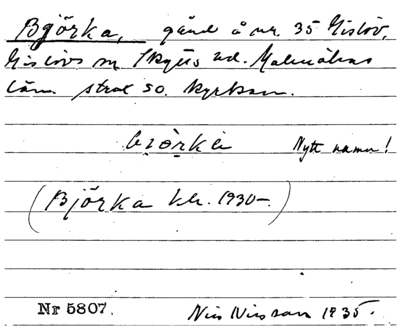 Björka, gård å nr 35 Gislöv,
Gislövs sn Skytts hd. Malmöhus
län. strax so. kyrkan.
bjö̀rka Nytt namn!
(Björka kh. 1930-)
Nr 5807. Nils Nilsson 1935.